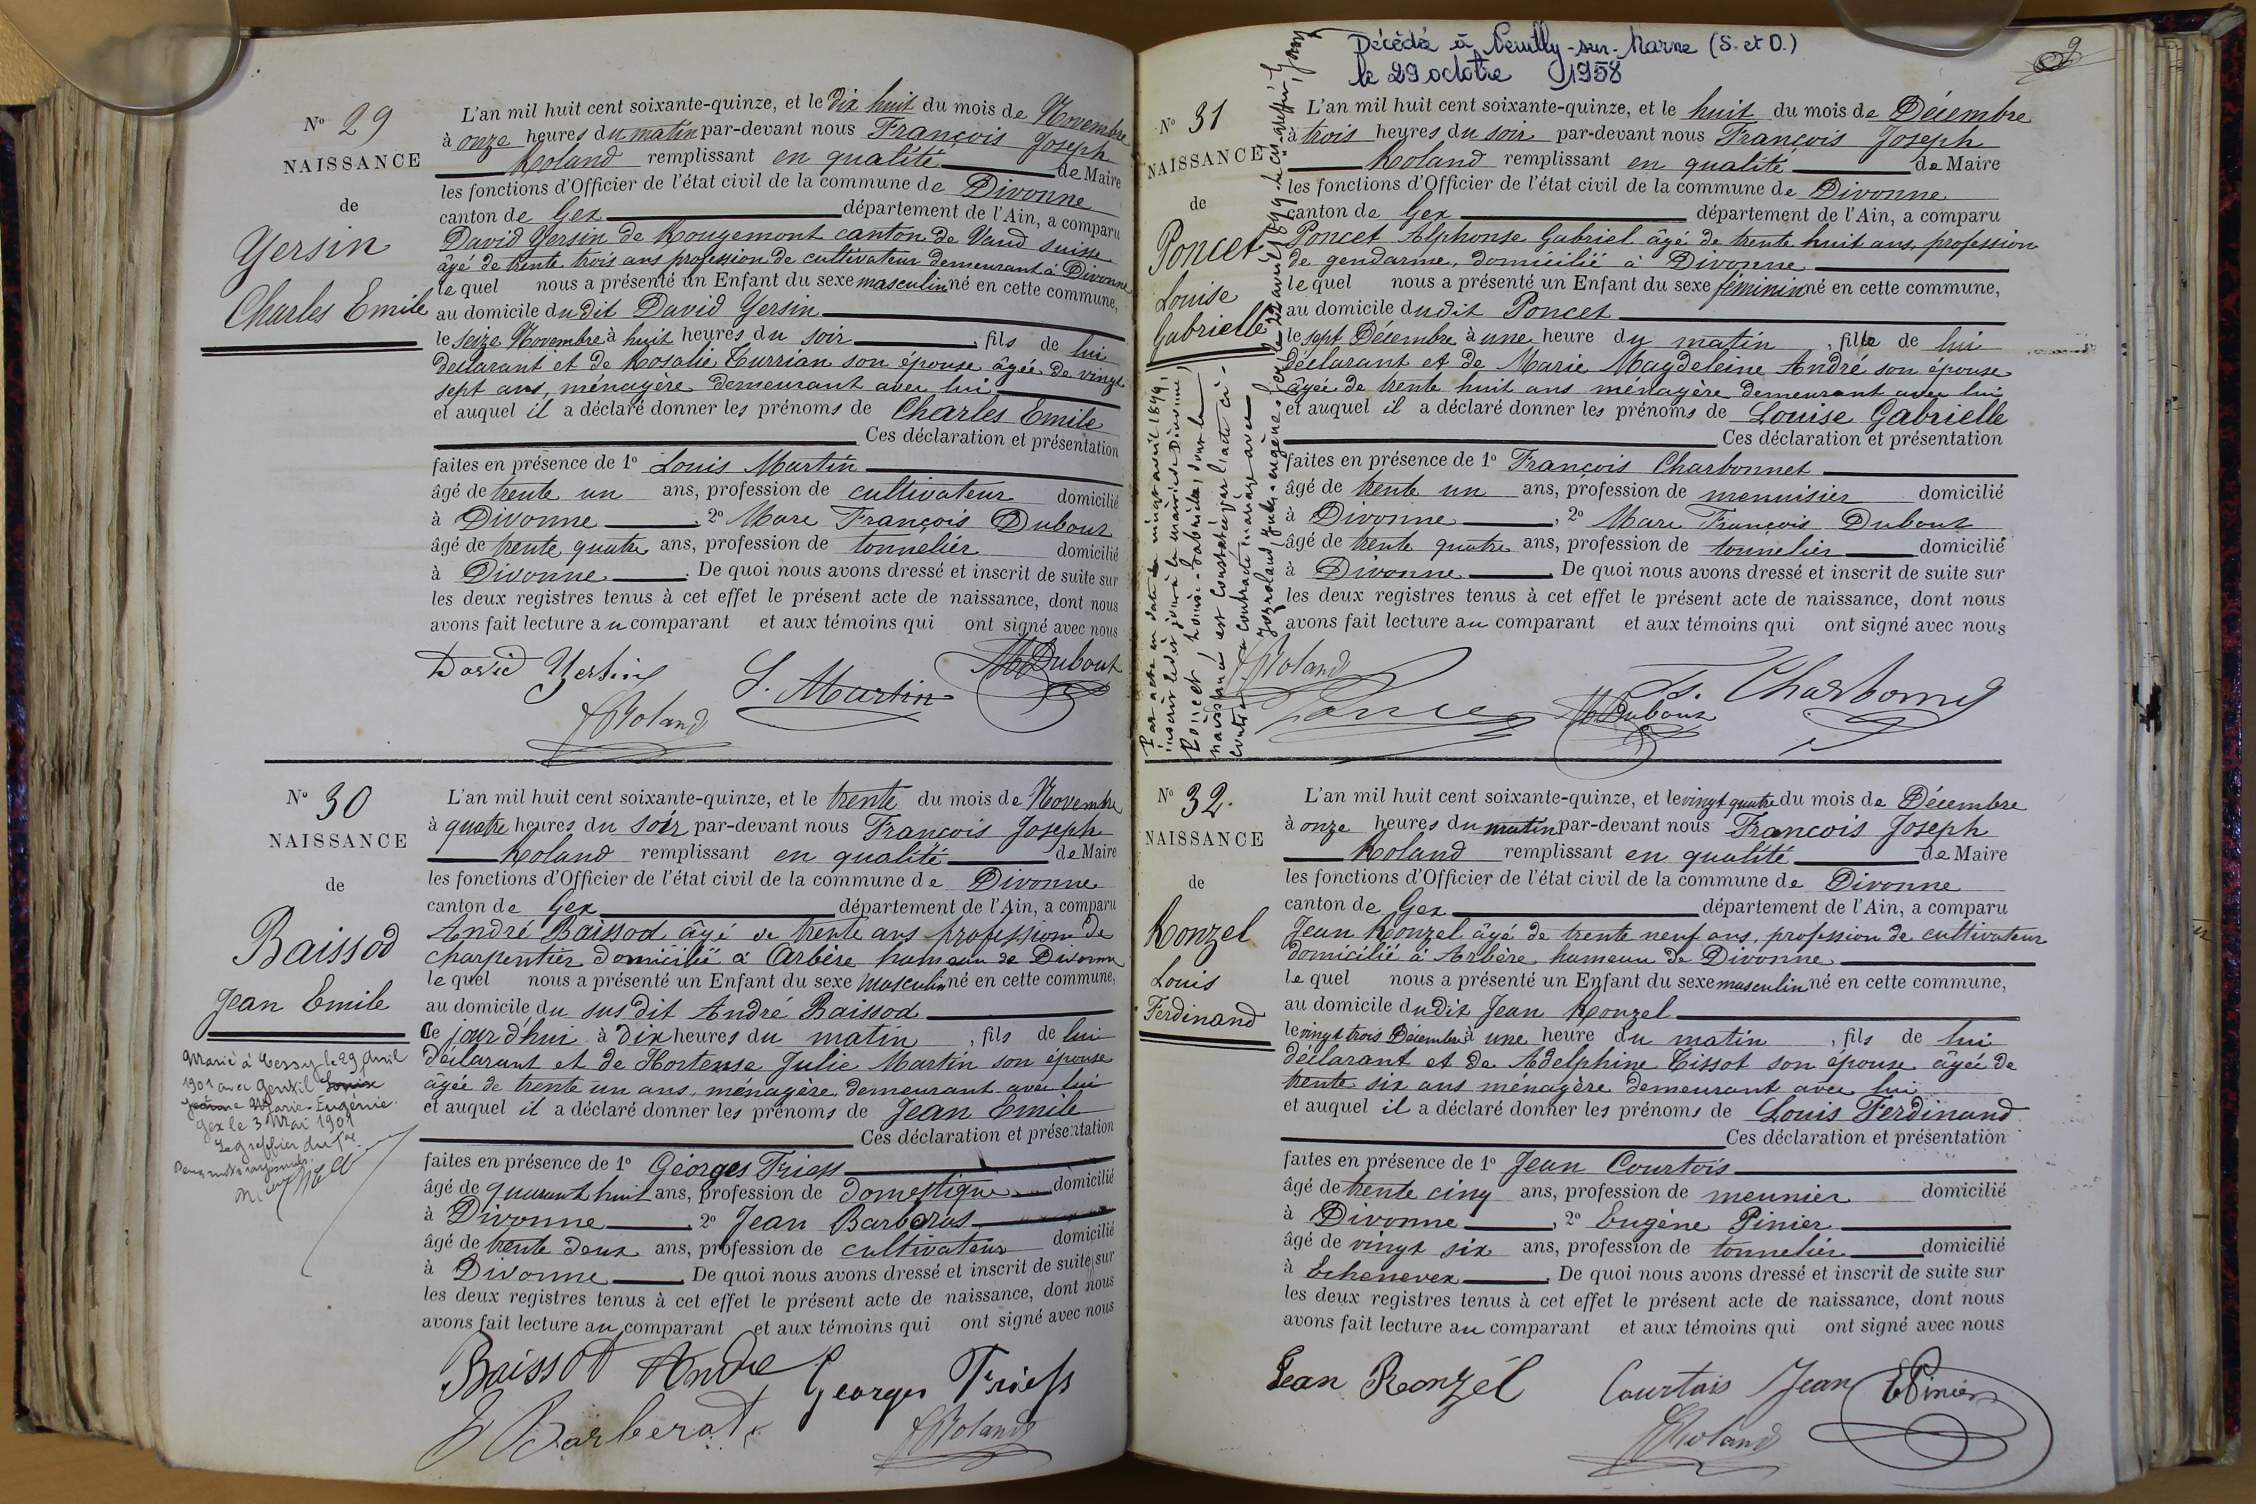 N° 29
NAISSANCE
de
Yersin
Charles Emile
L'an mil huit cent soixante-quinze, et le dix huit du mois de Novembre
à onze heures du matin par-devant nous François Joseph
Roland remplissant en qualité de Maire
les fonctions d'Officier de l'état civil de la commune de Divonne
canton de Gex département de l'Ain, a comparu
David Yersin de Rougemont canton de Vaud suisse
âgé de trente trois ans profession de cultivateur demeurant à Divonne
le quel nous a présenté un Enfant du sexe masculin né en cette commune,
au domicile dudit David Yersin
le seize Novembre à huit heures du soir, fils de lui
déclarant et de Rosalie Turrian son épouse âgée de vingt
sept ans, ménagère demeurant avec lui
et auquel il a déclaré donner les prénoms de Charles Emile
Ces déclaration et présentation
faites en présence de 1° Louis Martin
âgé de trente un ans, profession de cultivateur domicilié
à Divonne. 2° Marc François Dubout
âgé de trente quatre ans, profession de tonnelier domicilié
à Divonne. De quoi nous avons dressé et inscrit de suite sur
les deux registres tenus à cet effet le présent acte de naissance, dont nous
avons fait lecture au comparant et aux témoins qui ont signé avec nous
David Yersin L. Martin Dubout
Roland
N° 30
NAISSANCE
de
Baissod
Jean Emile
Marié à Cessy le 29 Avril
1901 avec Gentil Louise
Jeanne Marie-Eugénie.
Gex le 3 Mai 1901
Le greffier du
L'an mil huit cent soixante-quinze, et le trente du mois de Novembre
à quatre heures du soir par-devant nous François Joseph
Roland remplissant en qualité de Maire
les fonctions d'Officier de l'état civil de la commune de Divonne
canton de Gex département de l'Ain, a comparu
André Baissod âgé de trente ans profession de
charpentier domicilié à Arbère hameau de Divonne
le quel nous a présenté un Enfant du sexe masculin né en cette commune,
au domicile du sus dit André Baissod
ce jourd'hui à dix heures du matin, fils de lui
déclarant et de Hortense Julie Martin son épouse
âgée de trente un ans, ménagère demeurant avec lui
et auquel il a déclaré donner les prénoms de Jean Emile
Ces déclaration et présentation
faites en présence de 1° Georges Friess
âgé de quarante huit ans, profession de domestique domicilié
à Divonne. 2° Jean Barberat
âgé de trente deux ans, profession de cultivateur domicilié
à Divonne. De quoi nous avons dressé et inscrit de suite sur
les deux registres tenus à cet effet le présent acte de naissance, dont nous
avons fait lecture au comparant et aux témoins qui ont signé avec nous
Baissod André Georges Friess
J Barberat Roland
Décédée à Neuilly-sur-Marne (S. et O.)
le 29 octobre 1958
9
N° 31
NAISSANCE
de
Poncet
Louise
Gabrielle
Par acte en date du vingt avril 1899,
inscrit ledit jour à la mairie de Divonne,
Poncet, Louise-Gabrielle, dont la
naissance est constatée par l'acte ci-
contre a contracté mariage avec
L'an mil huit cent soixante-quinze, et le huit du mois de Décembre
à trois heures du soir par-devant nous François Joseph
Roland remplissant en qualité de Maire
les fonctions d'Officier de l'état civil de la commune de Divonne
canton de Gex département de l'Ain, a comparu
Poncet Alphonse Gabriel âgé de trente huit ans, profession
de gendarme, domicilié à Divonne
le quel nous a présenté un Enfant du sexe féminin né en cette commune,
au domicile dudit Poncet
le sept Décembre à une heure du matin, fille de lui
déclarant et de Marie Magdeleine André son épouse
âgée de trente huit ans ménagère demeurant avec lui
et auquel il a déclaré donner les prénoms de Louise Gabrielle
Ces déclaration et présentation
faites en présence de 1° François Charbonnet
âgé de trente un ans, profession de menuisier domicilié
à Divonne, 2° Marc François Dubout
âgé de trente quatre ans, profession de tonnelier domicilié
à Divonne. De quoi nous avons dressé et inscrit de suite sur
les deux registres tenus à cet effet le présent acte de naissance, dont nous
avons fait lecture au comparant et aux témoins qui ont signé avec nous
Roland
Poncet Dubout Charbonnet
N° 32.
NAISSANCE
de
Ronzel
Louis
Ferdinand
L'an mil huit cent soixante-quinze, et le vingt quatre du mois de Décembre
à onze heures du matin par-devant nous François Joseph
Roland remplissant en qualité de Maire
les fonctions d'Officier de l'état civil de la commune de Divonne
canton de Gex département de l'Ain, a comparu
Jean Ronzel âgé de trente neuf ans, profession de cultivateur
domicilié à Arbère hameau de Divonne
le quel nous a présenté un Enfant du sexe masculin né en cette commune,
au domicile dudit Jean Ronzel
le vingt trois Décembre à une heure du matin, fils de lui
déclarant et de Adelphine Tissot son épouse âgée de
trente six ans ménagère demeurant avec lui
et auquel il a déclaré donner les prénoms de Louis Ferdinand
Ces déclaration et présentation
faites en présence de 1° Jean Courtois
âgé de trente cinq ans, profession de meunier domicilié
à Divonne, 2° Eugène Pinier
âgé de vingt six ans, profession de tonnelier domicilié
à Echenevex. De quoi nous avons dressé et inscrit de suite sur
les deux registres tenus à cet effet le présent acte de naissance, dont nous
avons fait lecture au comparant et aux témoins qui ont signé avec nous
Jean Ronzel Courtois Jean E Pinier
Roland